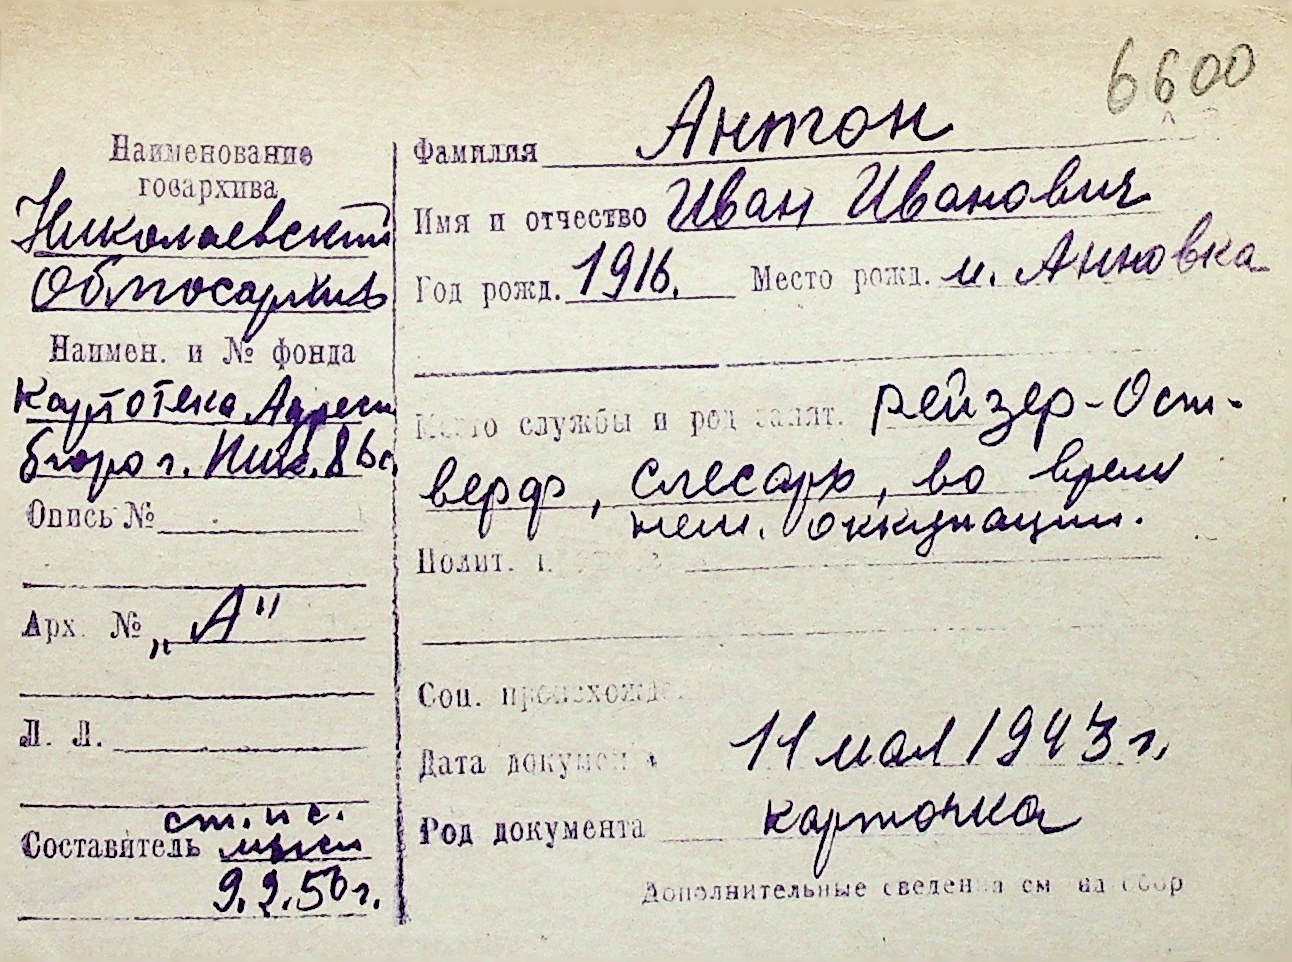 6600
Наименование
госархива
Николаевский
Облгосархив
Наимен. и № фонда
Картотека Адресн
бюро г. Ник.
Опись №
Арх. № „А"
Л. Л.
ст. н с.
Составитель
9.2.50 г.
Фамилия Антон
Имя и отчество Иван Иванович
Год рожд. 1916. Место рожд. м. Анновка
Место службы и род занят. Рейзер-Ост-
верф, слесарь, во время
нем. оккупации.
Полит.
Соц. происхожд
Дата докумен 11 мая 1943 г.
Род документа карточка
Дополнительные сведения см на обор